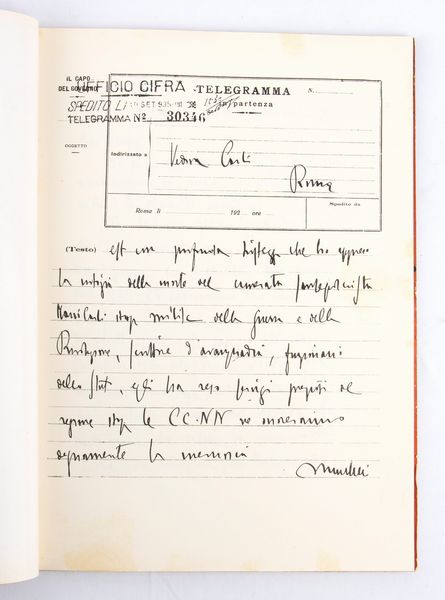 IL CAPO
DEL GOVERNO
UFFICIO CIFRA
TELEGRAMMA N.
SPEDITO LI SET 935
in partenza
TELEGRAMMA Nº 30346
OGGETTO
Indirizzato a Vedova Carli
Roma
Roma li 192 ore
Spedito da
(Testo) est con profonda tristezza che ho appreso
la notizia della morte del camerata
Mario Carli stop milite della guerra e della
Rivoluzione, scrittore d'avanguardia, funzionario
dello Stato, egli ha reso servigi preziosi al
regime stop le CC.NN ne onoreranno
degnamente la memoria
Mussolini